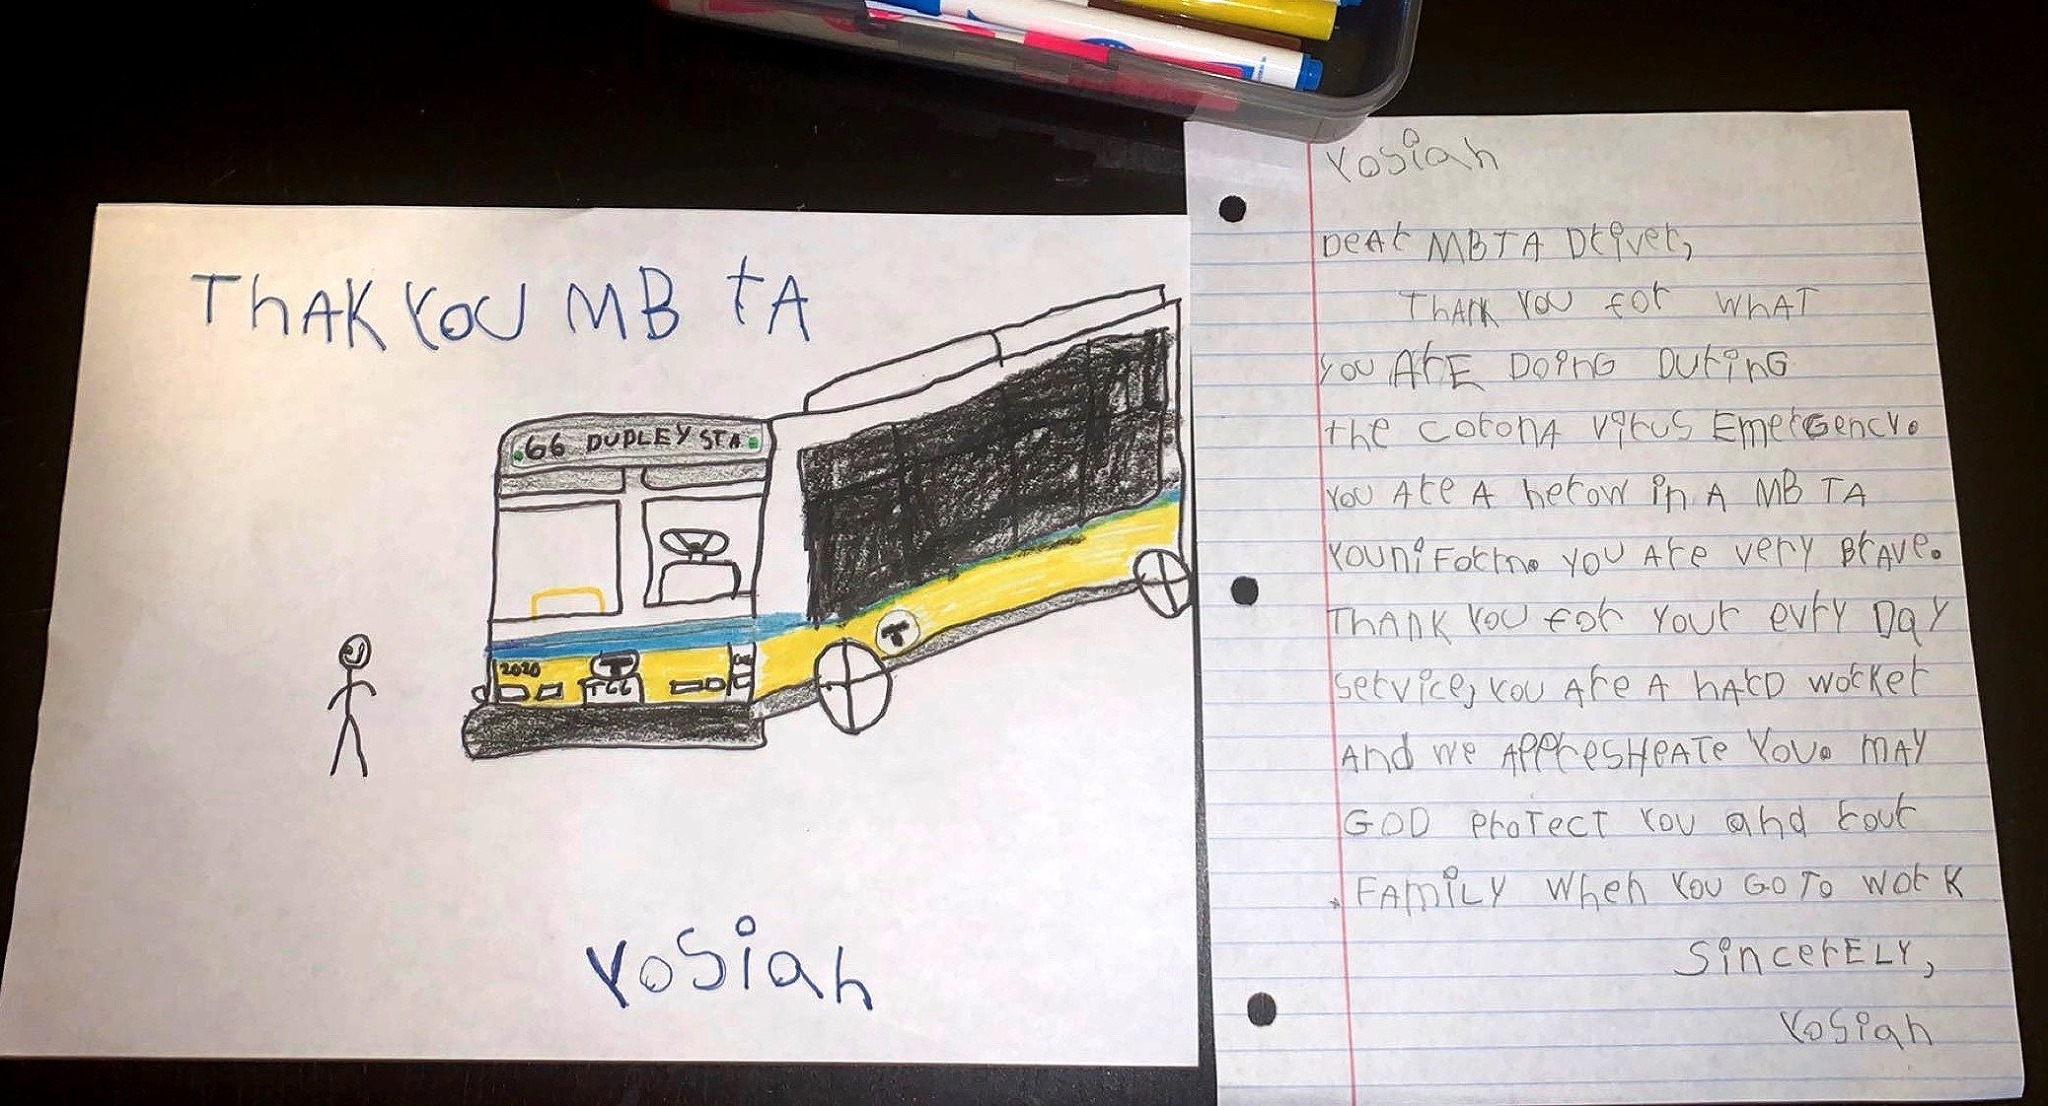 THAK YOU MB tA
66 DUDLEY STA
2020
T
T66
T
Yosiah
Yosiah
DeAr MBTA Driver,
THANK YOU for WHAT
you ArE DOinG DUrinG
the coronA virus EmerGency.
You Are A herow in A MBTA
YouniForm. You Are very BrAve.
THANK YOU for Your evry DAY
service, You Are A hArD worker
And we APPresHeATe You. MAY
GOD ProTecT You and Your
FAmiLY when You GO To work
SincerELY,
Yosiah